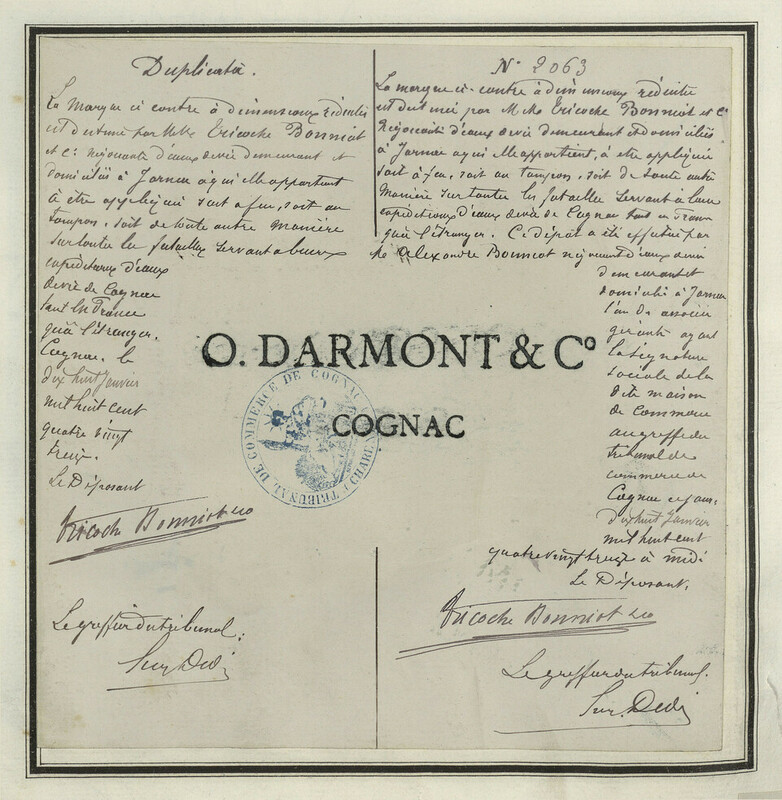 Duplicata.
La marque ci contre à dimensions réduites
est destinée par MMrs Tricoche Bonniot
et Cie négociants d'eaux de vie demeurant et
domiciliés à Jarnac à qui elle appartient
à être appliquée soit à feu, soit au
tampon, soit de toute autre manière
sur toutes les futailles servant à leurs
expéditions d'eaux
de vie de Cognac
tant en France
qu'à l'étranger.
Cognac, le
dix huit Janvier
mil huit cent
quatre vingt
treize.
Le Déposant
Tricoche Bonniot & Co
Le greffier du tribunal,
No 2063
La marque ci-contre à dimensions réduites
est destinée par MMrs Tricoche Bonniot et Cie
Négociants d'eaux de vie demeurant et domiciliés
à Jarnac à qui elle appartient, à être appliquée
soit à feu, soit au tampon, soit de toute autre
manière sur toutes les futailles servant à leurs
expéditions d'eaux de vie de Cognac tant en France
qu'à l'étranger. Ce dépôt a été effectué par
Mr Alexandre Bonniot négociant d'eaux de vie
demeurant et
domicilié à Jarnac
l'un des associés
gérants ayant
la signature
sociale de la
dite maison
de commerce
au greffe du
tribunal de
commerce de
Cognac ce jour
dix huit Janvier
mil huit cent
quatre vingt treize à midi
Le Déposant,
Tricoche Bonniot & Co
Le greffier du tribunal,
O. DARMONT & Co
COGNAC
TRIBUNAL DE COMMERCE DE COGNAC